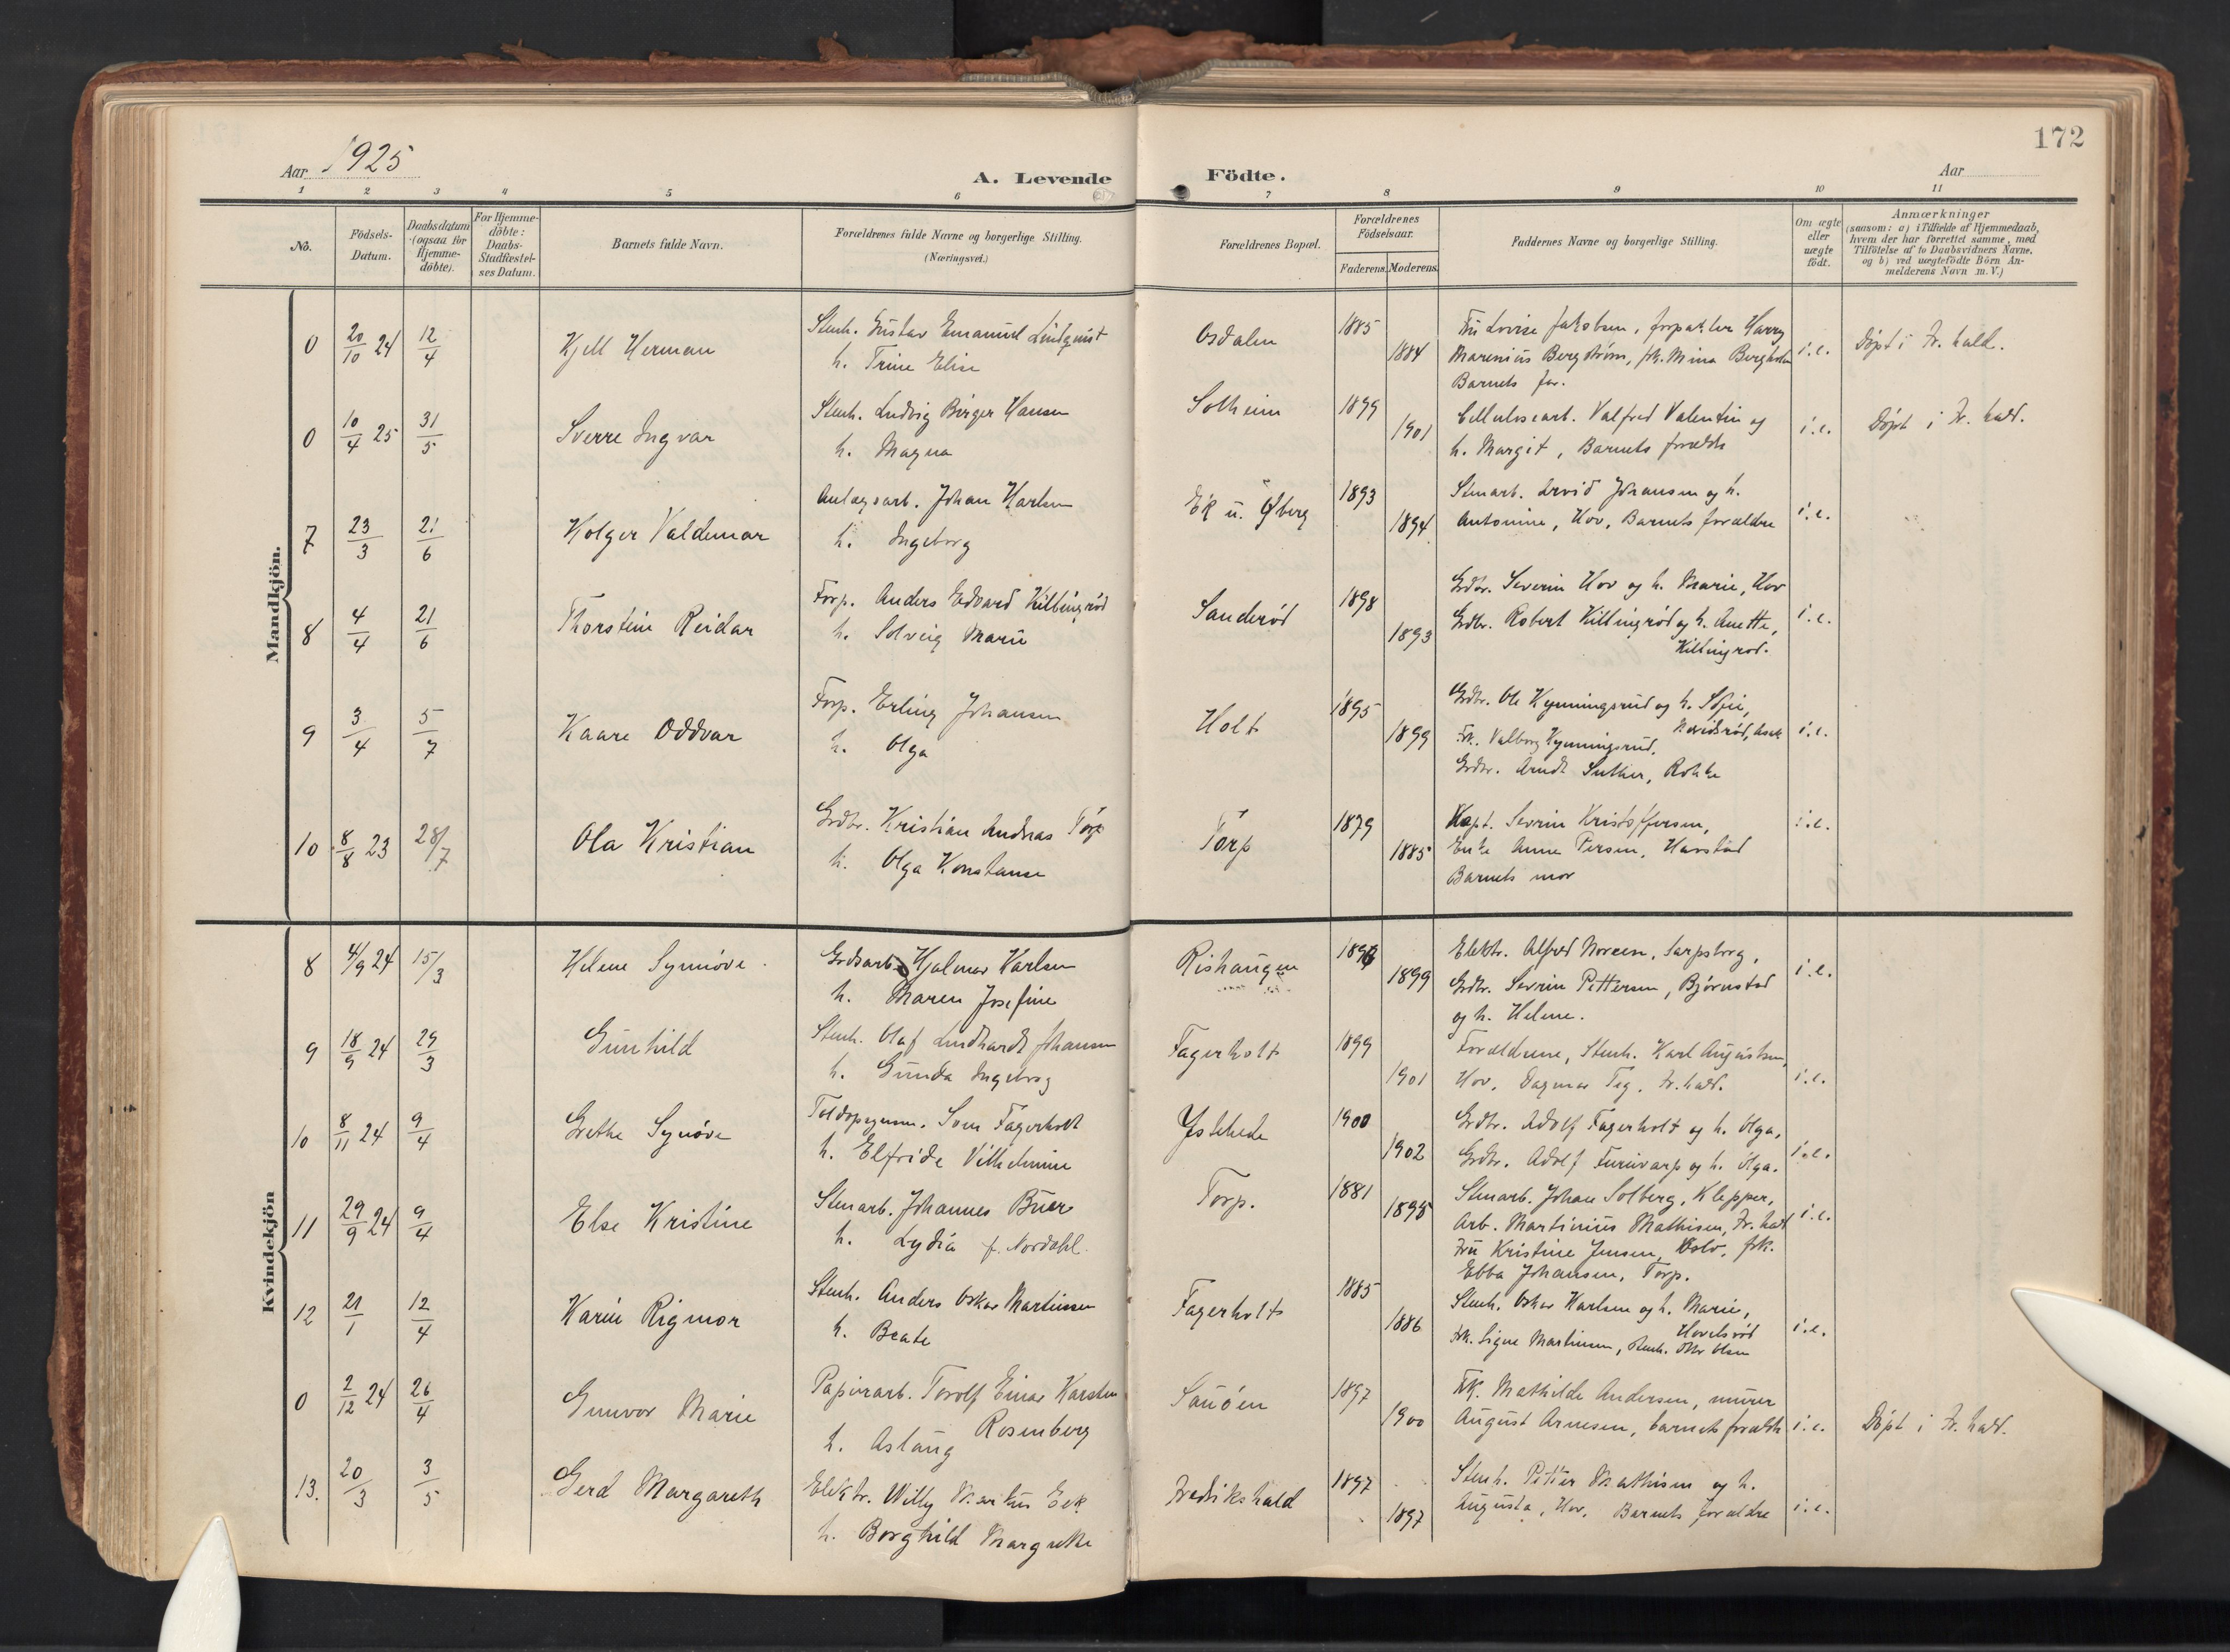 172
Aar 1925
A. Levende
Födte.
Aar
1 2 3 4 5 6 7 8 9 10 11
No.
Födsels-
Datum.
Daabsdatum
(ogsaa for
Hjemme-
döbte).
For Hjemme-
döbte:
Daabs-
Stadfæstel-
ses Datum.
Barnets fulde Navn.
Forældrenes fulde Navne og borgerlige Stilling.
(Næringsvei.)
Forældrenes Bopæl.
Forældrenes
Födselsaar.
Faderens. Moderens.
Faddernes Navne og borgerlige Stilling.
Om ægte
eller
uægte
födt.
Anmærkninger
(saasom: a) i Tilfælde af Hjemmedaab,
hvem der har forrettet samme, med
Tilföielse af to Daabsvidners Navne,
og b) ved uægtefödte Börn An-
melderens Navn m. V.)
Mandkjön.
0 20/10 24 12/4 Kjell Herman
Stenh. Gustav Emanuel Lindquist
h. Trine Elise
Osdalen 1885 1884
Fru Lovise Jakobsen, forpakter Harry
Marenius Bergstrøm, frk. Mina Bergholm
Barnets far.
i.e. Døpt i Fr.hald.
0 10/4 25 31/5 Sverre Ingvar
Stenh. Ludvig Birger Hansen
h. Magna
Solheim 1899 1901
Cellulosearb. Valfred Valentin og
h. Margit, Barnets foreldre
i.e. Døpt i Fr.hald.
7 23/3 21/6 Holger Valdemar
Anlægsarb. Johan Karlsen
h. Ingeborg
Ek u. Øberg 1893 1894
Stenarb. Arvid Johansen og h.
Antonine, Hov, Barnets forældre
i.e.
8 4/4 21/6 Thorstein Reidar
Forp. Anders Edvard Killingrød
h. Solveig Marie
Sanderød 1898 1893
Grdbr. Severin Hov og h. Marie, Hov
Grdbr. Robert Killingrød og h. Anette,
Killingrød.
i.e.
9 3/4 5/7 Kaare Oddvar
Forp. Erling Johansen
h. Olga
Holt 1895 1899
Grdbr. Ole Kynningsrud og h. Sofie,
Frk. Valborg Kynningsrud,
Grdbr. Arndt Suther, Rokke
i.e.
10 8/8 23 28/7 Ola Kristian
Grdbr. Kristian Andreas Torp
h. Olga Konstanse
Torp 1879 1885
Kapt. Severin Kristoffersen,
Enke Anne Persen, Harstad
Barnets mor
i.e.
Kvindekjön
8 4/9 24 15/3 Helene Synnøve
Grdsarb. Hjalmar Karlsen
h. Maren Josefine
Rishaugen 1899
Elektr. Alfred Noreen, Sarpsborg,
Grdbr. Severin Pettersen, Bjørnstad
og h. Helene.
i.e.
9 18/9 24 29/3 Gunhild
Stenh. Olaf Lindhardt Johansen
h. Gunda Ingeborg
Fagerholt 1899 1901
Forældrene, Stenh. Karl Augustsen,
Hov, Dagmar Teig, Fr.hald.
i.e.
10 8/11 24 9/4 Grethe Synøve
Toldopsynsm. Sven Fagerholt
h. Elfride Vilhelmine
Ystehede 1900 1902
Grdbr. Adolf Fagerholt og h. Olga,
Grdbr. Adolf Furuvarp og h. Olga.
i.e.
11 29/9 24 9/4 Else Kristine
Stenarb. Johannes Buer
h. Lydia f. Nordahl.
Torp. 1881 1895
Stenarb. Johan Solberg, Klepper,
Arb. Martinius Mathisen, Fr.hald
Fru Kristine Jensen, Oslo, frk.
Ebba Johansen, Torp.
i.e.
12 21/1 12/4 Karin Rigmor
Stenh. Anders Oskar Martinsen
h. Beate
Fagerholt 1885 1886
Stenh. Oskar Karlsen og h. Marie,
Hovelsrød
Frk. Signe Martinsen, Stenh. Olsen
i.e.
0 2/12 24 26/4 Gunvor Marie
Papirarb. Torolf Einar Karsten
Rosenberg
h. Aslaug
Sauøen 1897 1900
Frk. Mathilde Andersen, murer
August Arnesen, barnets foreldre
i.e. Døpt i Fr.hald.
13. 20/3 3/5 Gerd Margareth
Elektr. Willy Martin Eek
h. Borghild Margrethe
Fredrikshald 1897 1897
Stenh. Petter Mathisen og h.
Augusta, Hov, Barnets forældre
i.e.